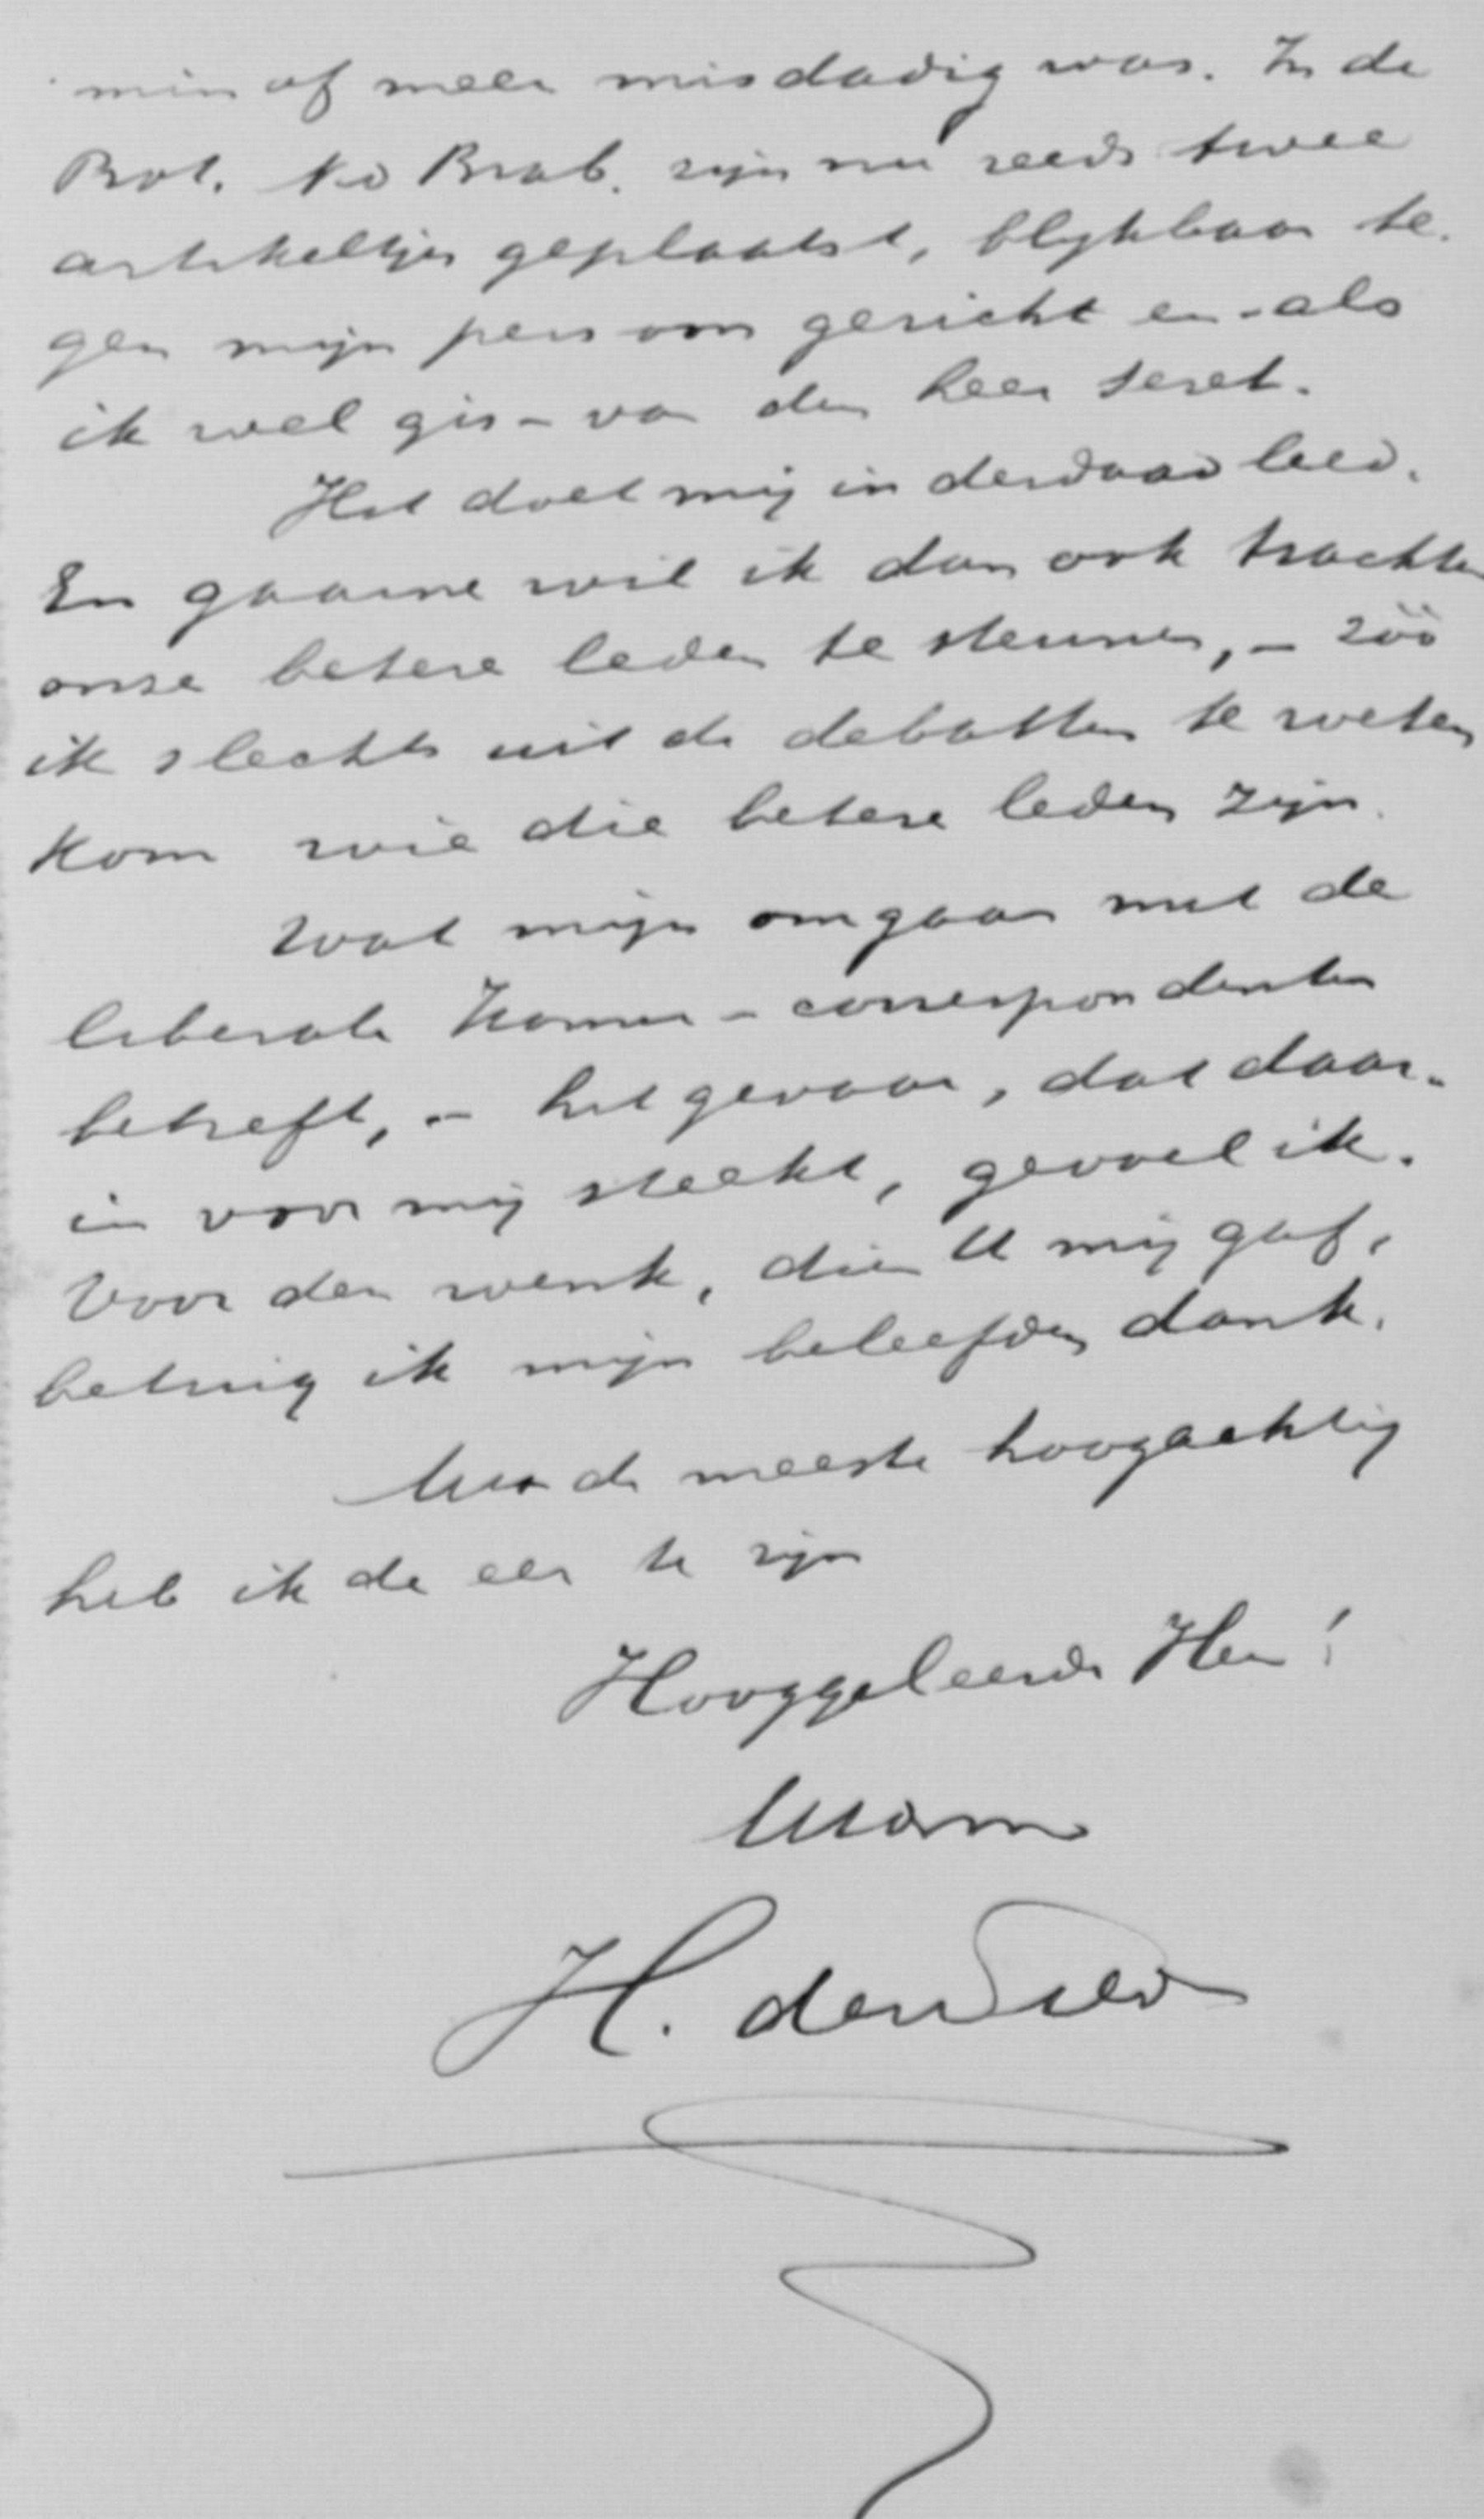 min of meer misdadig was. In de
Prot. No Brab. zijn nu reeds twee
artikeltjes geplaatst, blijkbaar te-
gen mijn persoon gericht en - als
ik wel gis - van den heer Seret.
Het doet mij inderdaad leed.
En gaarne wil ik dan ook trachten
onze betere leden te steunen, - zóó
ik slechts uit de debatten te weten
kom wie die betere leden zijn.
Wat mijn omgaan met de
liberale Kamer-correspondenten
betreft, - het gevaar, dat daar-
in voor mij steekt, gevoel ik.
Voor den wenk, dien U mij gaf,
betuig ik mijn beleefden dank.
Met de meeste hoogachting
heb ik de eer te zijn
Hooggeleerde Heer!
Uwdm
H. den